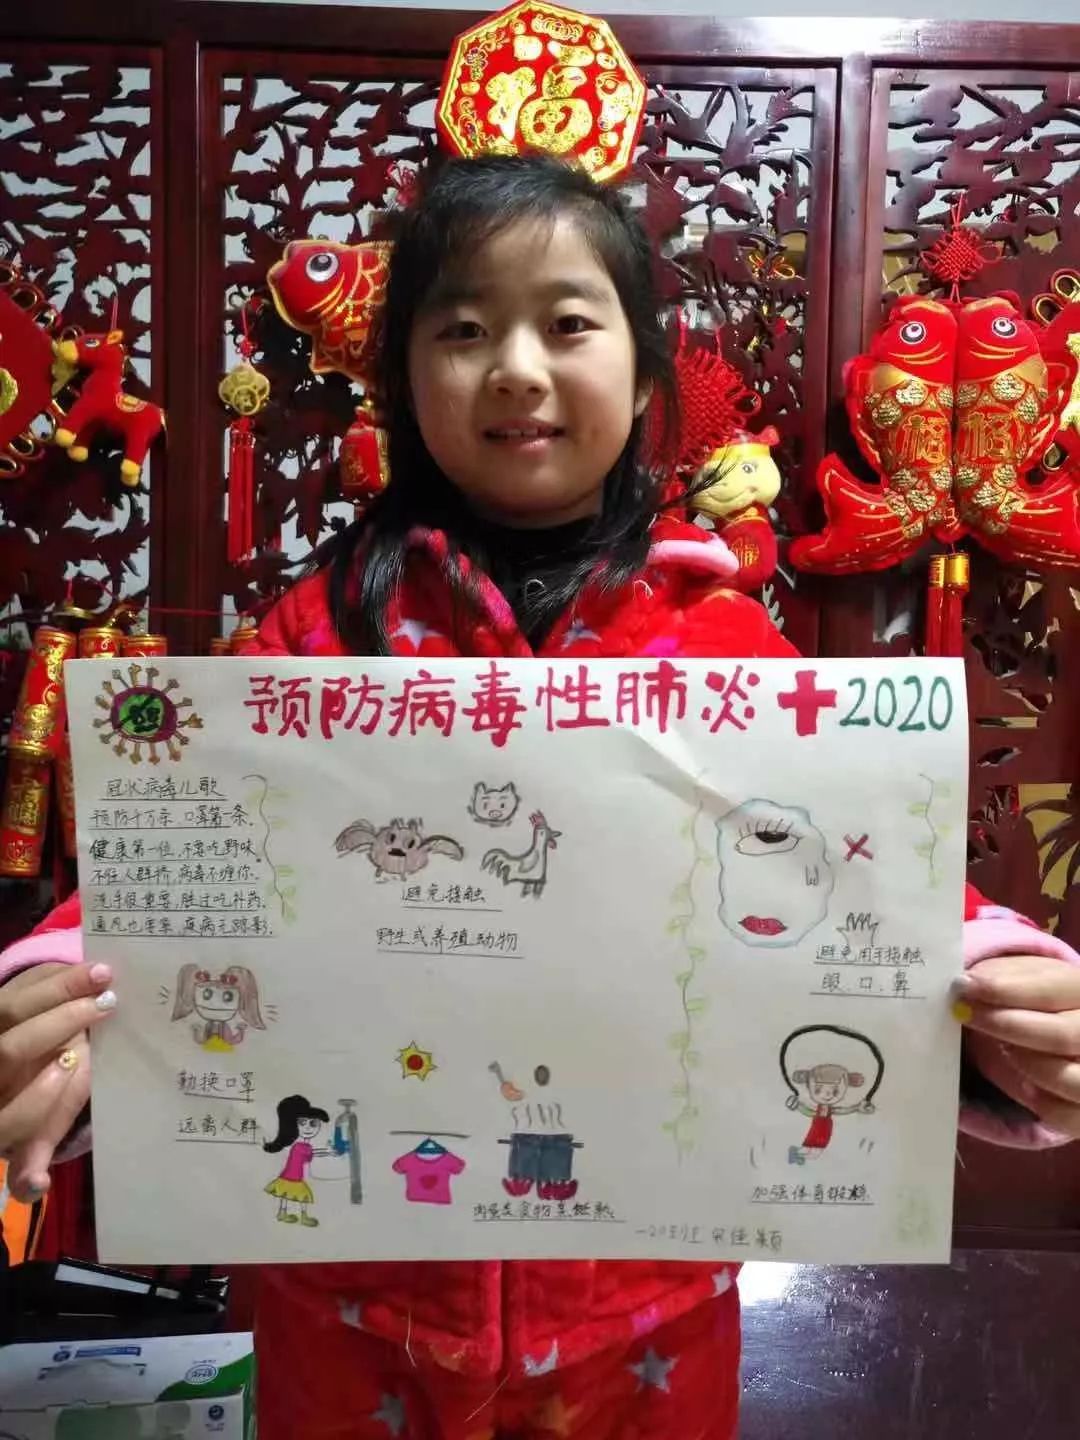 福
福
福
预防病毒性肺炎 2020
冠状病毒儿歌
预防千万条，口罩第一条。
健康第一位，不要吃野味。
不往人群挤，病毒不缠你。
洗手很重要，胜过吃补药。
通风也要紧，疾病无踪影。
避免接触
野生或养殖动物
避免用手接触
眼、口、鼻
勤换口罩
远离人群
肉蛋类食物煮熟。
加强体育锻炼